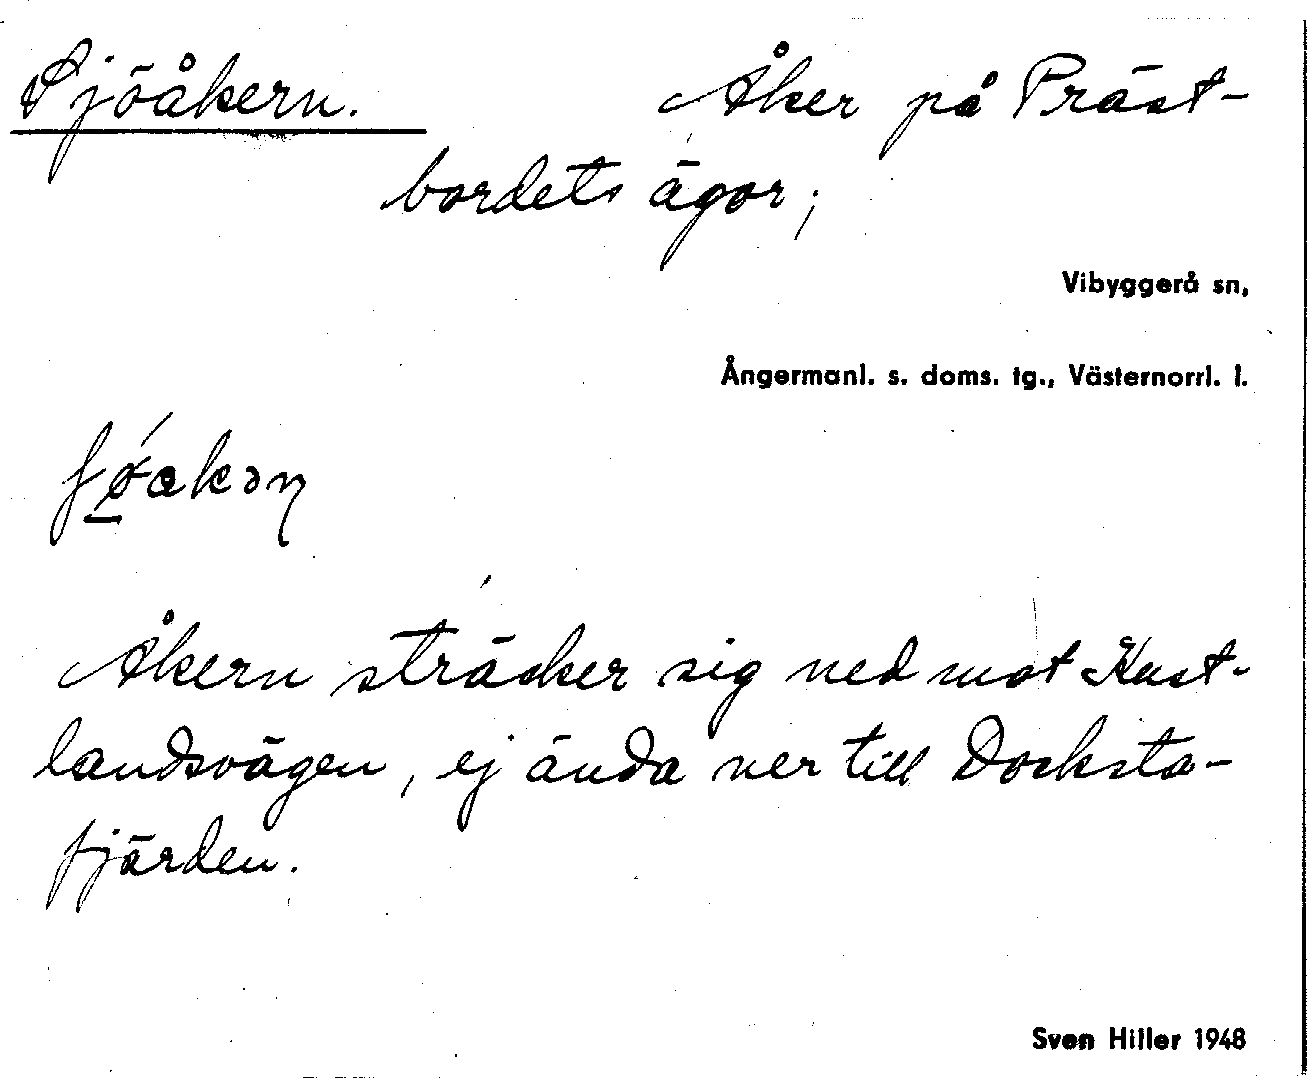 Sjöåkern. Åker på Präst-
bordets ägor;
Vibyggerå sn,
Ångermanl. s. doms. tg., Västernorrl. l.
Åkern sträcker sig ned mot Kust-
landsvägen, ej ända ner till Docksta-
fjärden.
Sven Hiller 1948